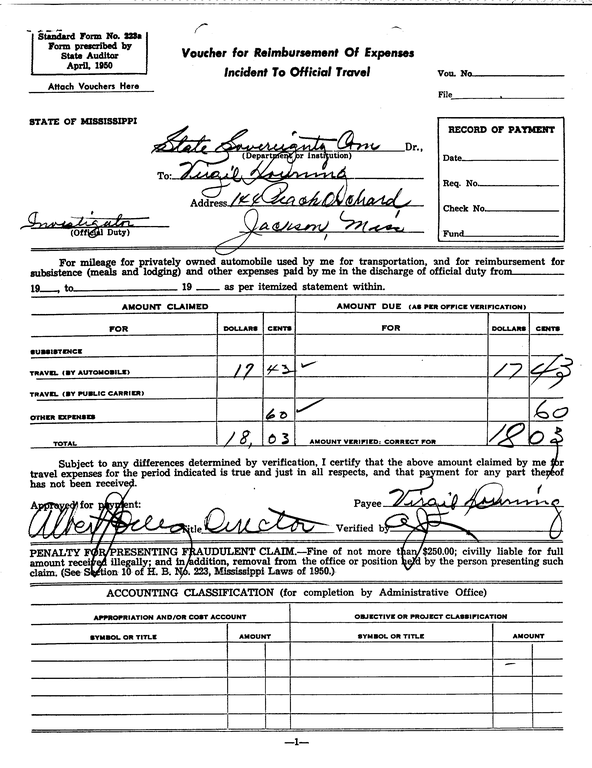 Standard Form No. 223a
Form prescribed by
State Auditor
April, 1950
Attach Vouchers Here
Voucher for Reimbursement Of Expenses
Incident To Official Travel
Vou. No.
File
STATE OF MISSISSIPPI
State Sovereignty Com Dr.,
(Department or Institution)
To: Virgil Downing
Address 144 Peach Orchard
Jackson, Miss
Investigator
(Official Duty)
RECORD OF PAYMENT
Date
Req. No.
Check No.
Fund
For mileage for privately owned automobile used by me for transportation, and for reimbursement for
subsistence (meals and lodging) and other expenses paid by me in the discharge of official duty from
19 , to 19 as per itemized statement within.
AMOUNT CLAIMED AMOUNT DUE (AS PER OFFICE VERIFICATION)
FOR DOLLARS CENTS FOR DOLLARS CENTS
SUBSISTENCE
TRAVEL (BY AUTOMOBILE) 17 43 ✓ 17 43
TRAVEL (BY PUBLIC CARRIER)
OTHER EXPENSES 60 ✓ 60
TOTAL 18, 03 AMOUNT VERIFIED: CORRECT FOR 18 03
Subject to any differences determined by verification, I certify that the above amount claimed by me for
travel expenses for the period indicated is true and just in all respects, and that payment for any part thereof
has not been received.
Approved for payment: Payee Virgil Downing
Albert Title Director Verified by
PENALTY FOR PRESENTING FRAUDULENT CLAIM.—Fine of not more than $250.00; civilly liable for full
amount received illegally; and in addition, removal from the office or position held by the person presenting such
claim. (See Section 10 of H. B. No. 223, Mississippi Laws of 1950.)
ACCOUNTING CLASSIFICATION (for completion by Administrative Office)
APPROPRIATION AND/OR COST ACCOUNT OBJECTIVE OR PROJECT CLASSIFICATION
SYMBOL OR TITLE AMOUNT SYMBOL OR TITLE AMOUNT
—1—